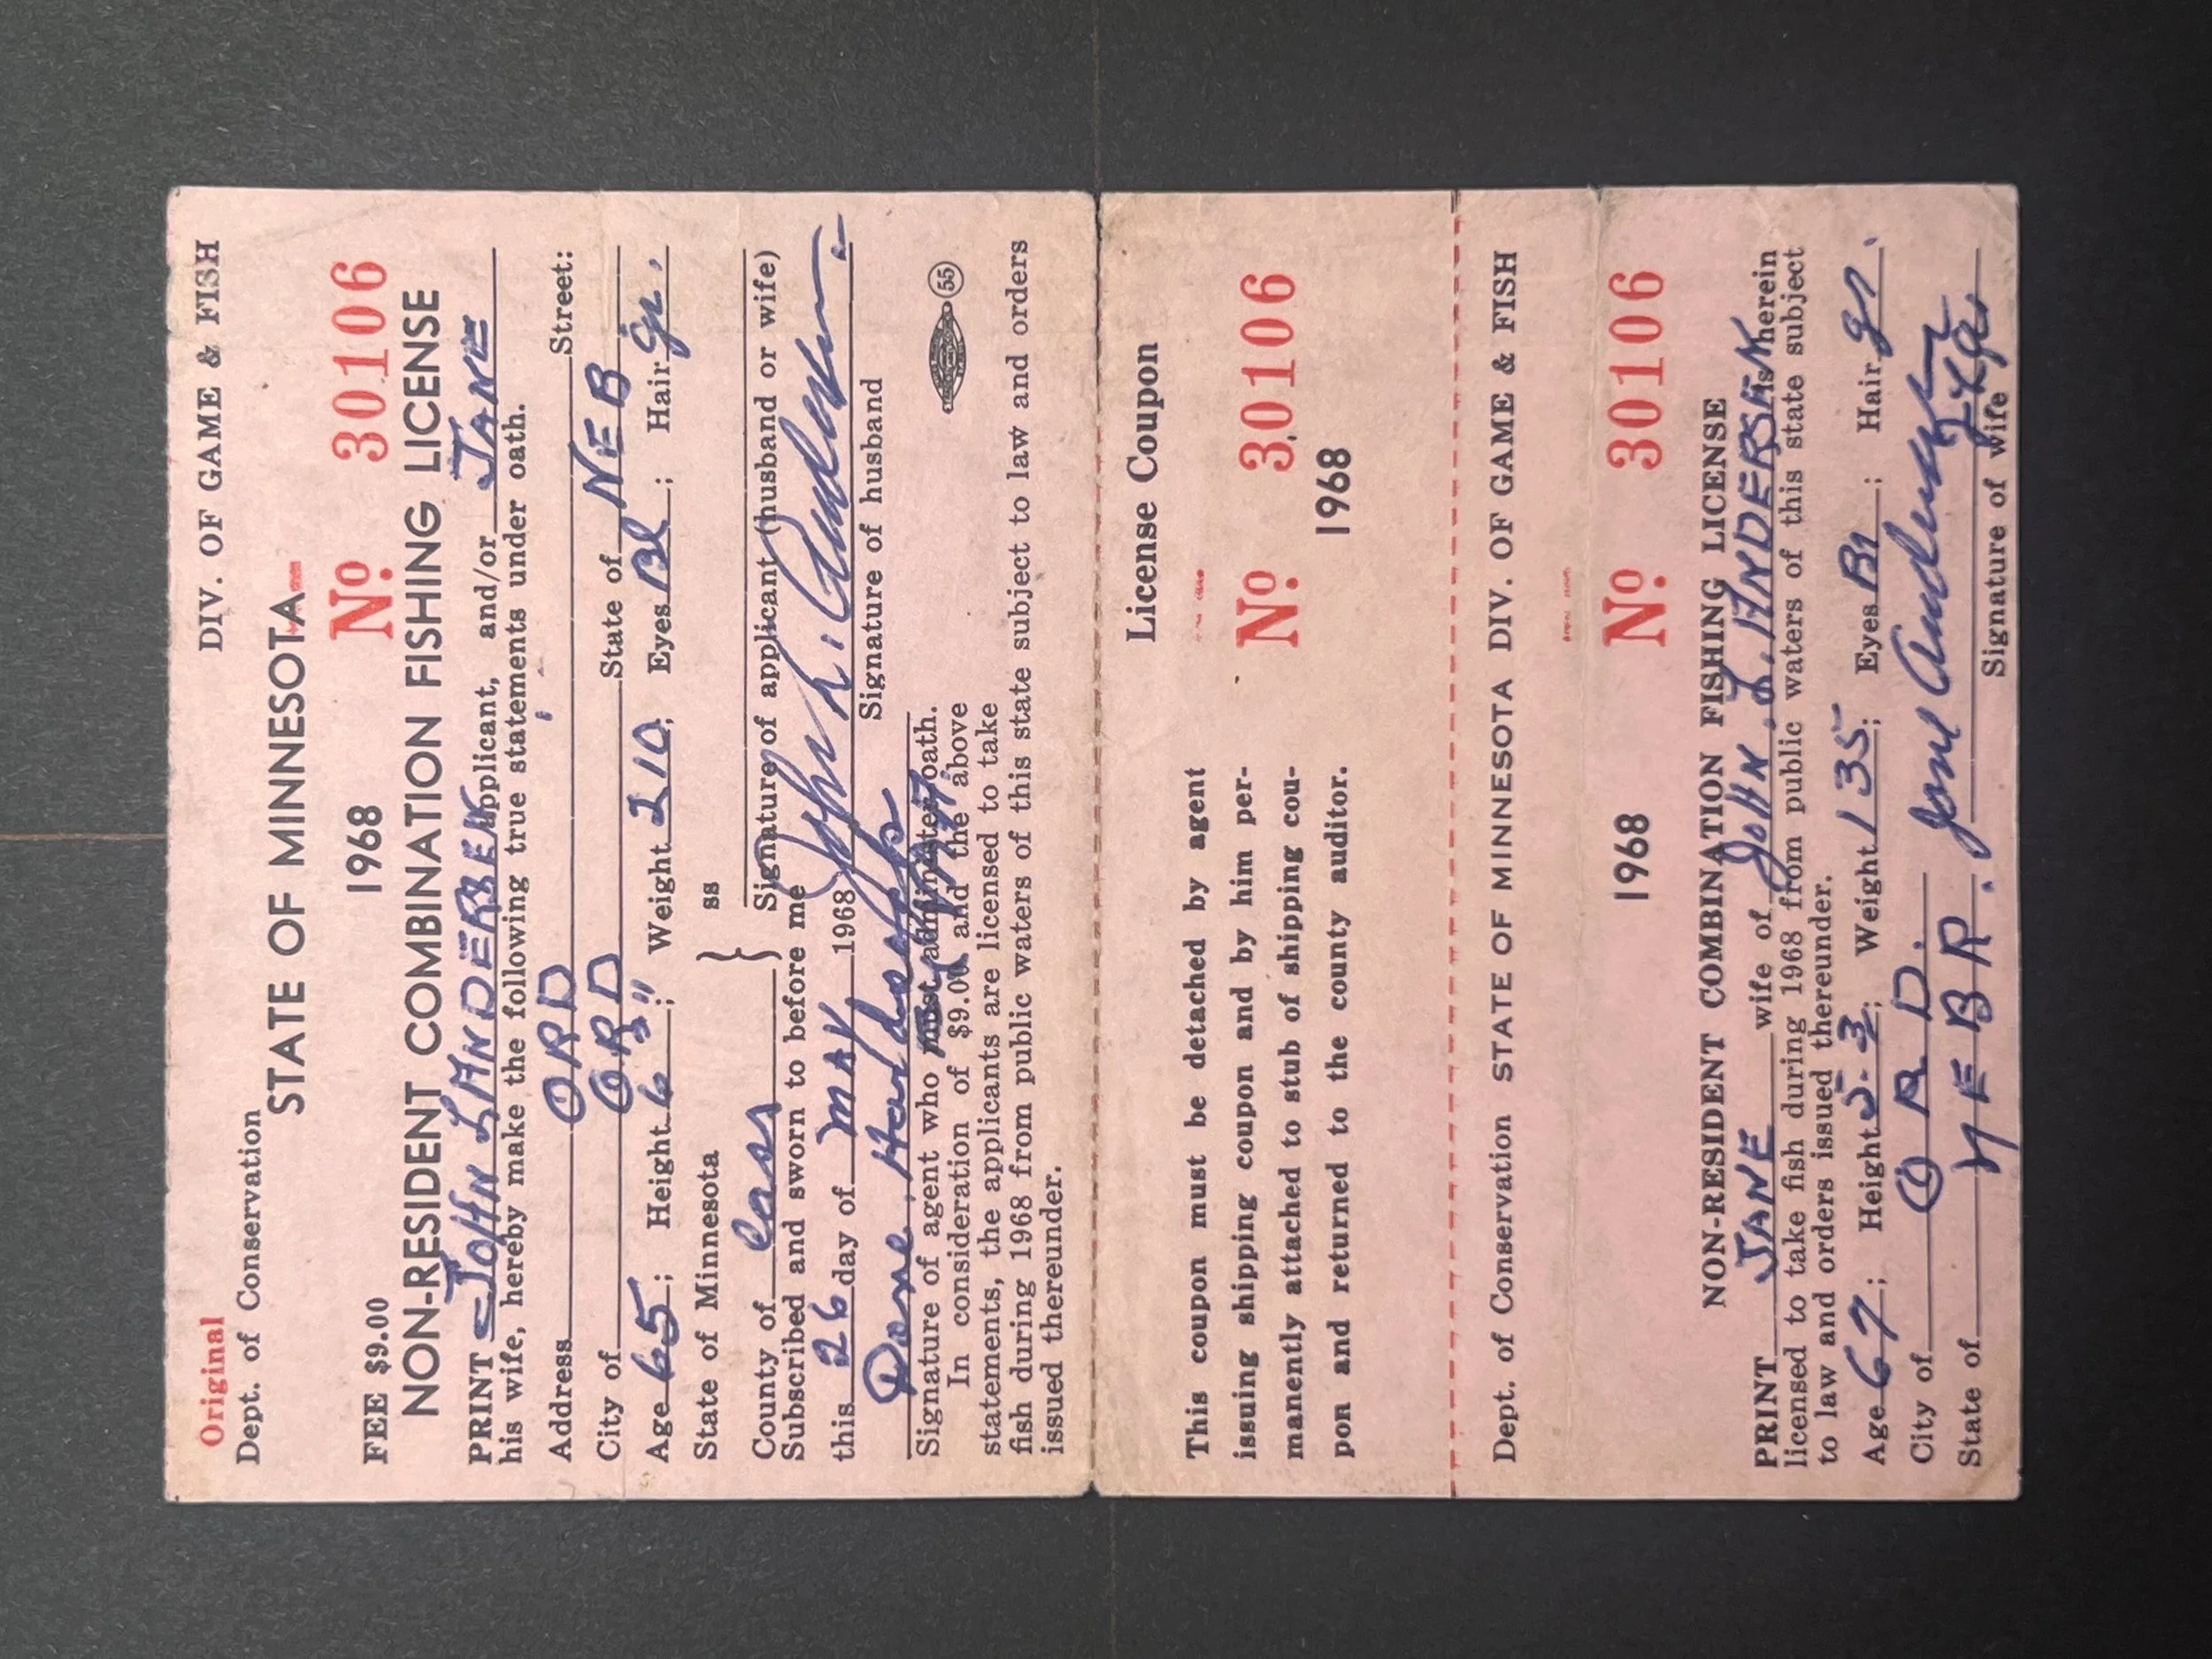 Original
Dept. of Conservation DIV. OF GAME & FISH
STATE OF MINNESOTA
FEE $9.00 1968 No. 30106
NON-RESIDENT COMBINATION FISHING LICENSE
PRINT JOHN L ANDERSEN applicant, and/or JANE
his wife, hereby make the following true statements under oath.
Address ORD Street:
City of ORD State of NEB
Age 65; Height 6'3"; Weight 210; Eyes Bl; Hair gr.
State of Minnesota
ss
County of Cass
Signature of applicant (husband or wife)
Subscribed and sworn to before me
this 26 day of MAY 1968 John L. Andersen
Signature of husband
Signature of agent who must administer oath.
55
In consideration of $9.00 and the above
statements, the applicants are licensed to take
fish during 1968 from public waters of this state subject to law and orders
issued thereunder.
License Coupon
This coupon must be detached by agent
issuing shipping coupon and by him per-
manently attached to stub of shipping cou-
pon and returned to the county auditor.
No. 30106
1968
Dept. of Conservation STATE OF MINNESOTA DIV. OF GAME & FISH
1968 No. 30106
NON-RESIDENT COMBINATION FISHING LICENSE
PRINT JANE wife of JOHN L. ANDERSEN is herein
licensed to take fish during 1968 from public waters of this state subject
to law and orders issued thereunder.
Age 67; Height 5-3; Weight 135; Eyes Br; Hair gr.
City of ORD.
State of NEBR. Jane Andersen
Signature of wife